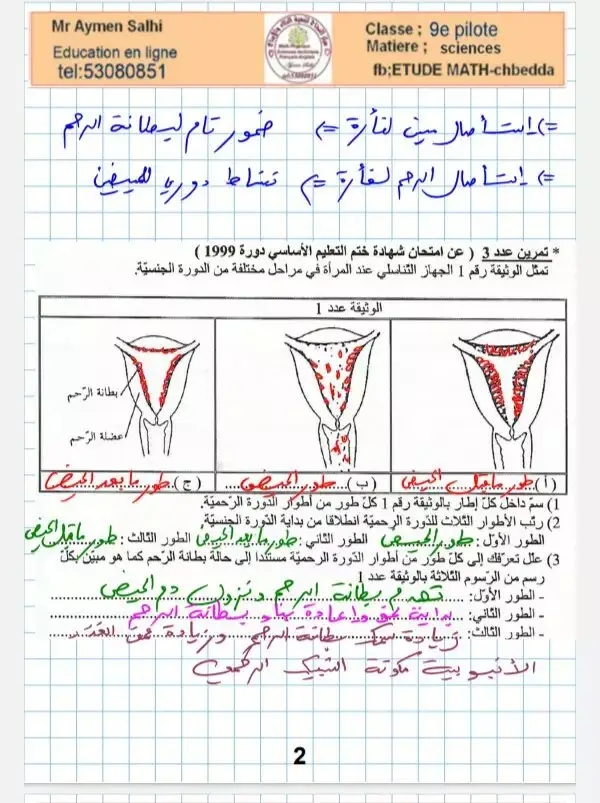 Mr Aymen Salhi
Education en ligne
tel:53080851
Classe ; 9e pilote
Matiere ; sciences
fb;ETUDE MATH-chbedda
=> استأصال مبيض لفأرة => ضمور تام لبطانة الرحم
=> استأصال الرحم لفأرة => نشاط دوري للمبيض
* تمرين عدد 3 ( عن امتحان شهادة ختم التعليم الأساسي دورة 1999 )
تمثل الوثيقة رقم 1 الجهاز التناسلي عند المرأة في مراحل مختلفة من الدورة الجنسيّة.
الوثيقة عدد 1
بطانة الرّحم
عضلة الرّحم
(أ) طور ما قبل الحيض
(ب) طور الحيض
(ج) طور ما بعد الحيض
1) سمّ داخل كلّ إطار بالوثيقة رقم 1 كلّ طور من أطوار الدّورة الرّحميّة.
2) رتّب الأطوار الثلاث للدّورة الرحميّة انطلاقا من بداية الدّورة الجنسيّة.
الطور الأول: طور الحيض الطور الثاني: طور ما بعد الحيض الطور الثالث: طور ما قبل الحيض
3) علّل تعرّفك إلى كلّ طور من أطوار الدّورة الرحميّة مستندا إلى حالة بطانة الرّحم كما هو مبيّن بكلّ
رسم من الرّسوم الثّلاثة بالوثيقة عدد 1
- الطور الأوّل: تهدم بطانة الرحم ونزول دم الحيض
- الطور الثاني: بداية نمو واعادة بناء بطانة الرحم
- الطور الثالث: زيادة سمك بطانة الرحم وزيادة نمو الغدد
الأنبوبية مكونة الشبيك الرحمي
2